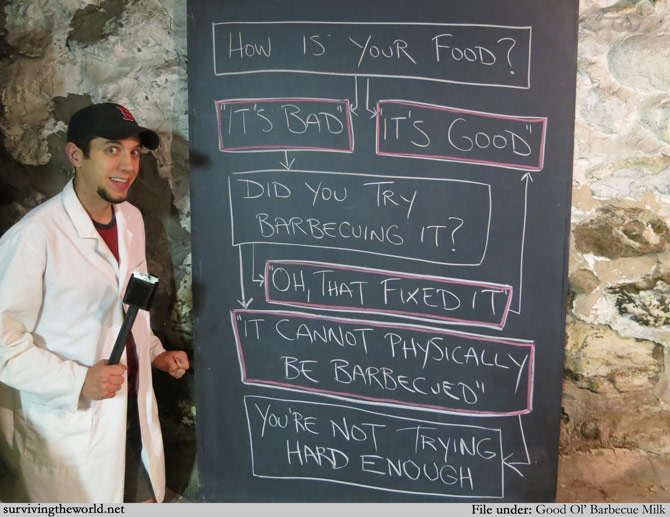 HOW IS YOUR FOOD?
"IT'S BAD"
"IT'S GOOD"
DID YOU TRY
BARBECUING IT?
"OH, THAT FIXED IT"
"IT CANNOT PHYSICALLY
BE BARBECUED"
YOU'RE NOT TRYING
HARD ENOUGH
survivingtheworld.net
File under: Good Ol' Barbecue Milk